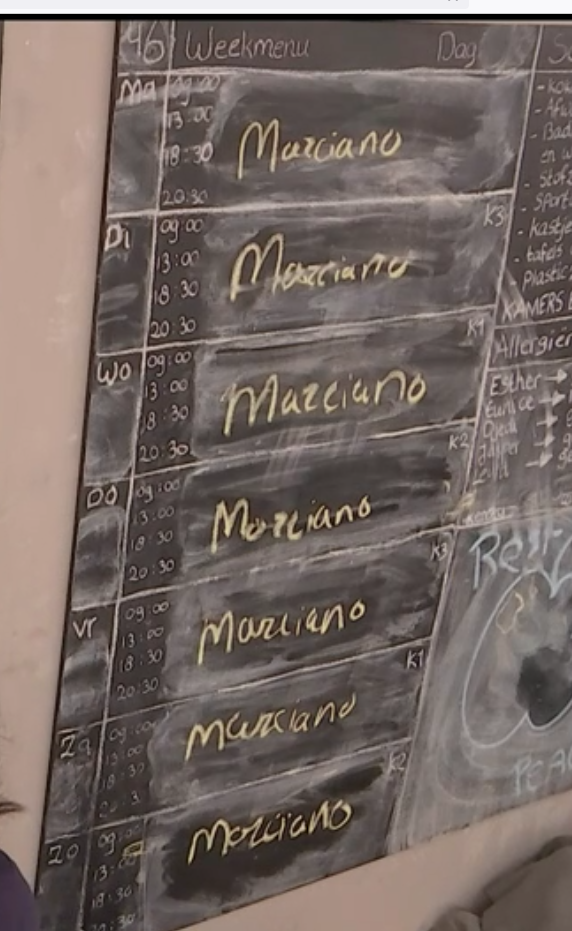 46 Weekmenu Dag
Ma 09:00
13:00
18:30
20:30
Marciano
K3
Di 09:00
13:00
18:30
20:30
Marciano
K1
Wo 09:00
13:00
18:30
20:30
Marciano
K2
Do 09:00
13:00
18:30
20:30
Marciano
K3
Vr 09:00
13:00
18:30
20:30
Marciano
K1
Za 09:00
13:00
18:30
Marciano
K2
Zo 09:
13:
18:30
Marciano
- Bad
en w
- Stofz
- Sport
- kastje
- tafels
- Plastic
KAMERS
Allergieën
Esther →
Eunice →
Djedi →
Jasper →
PEA